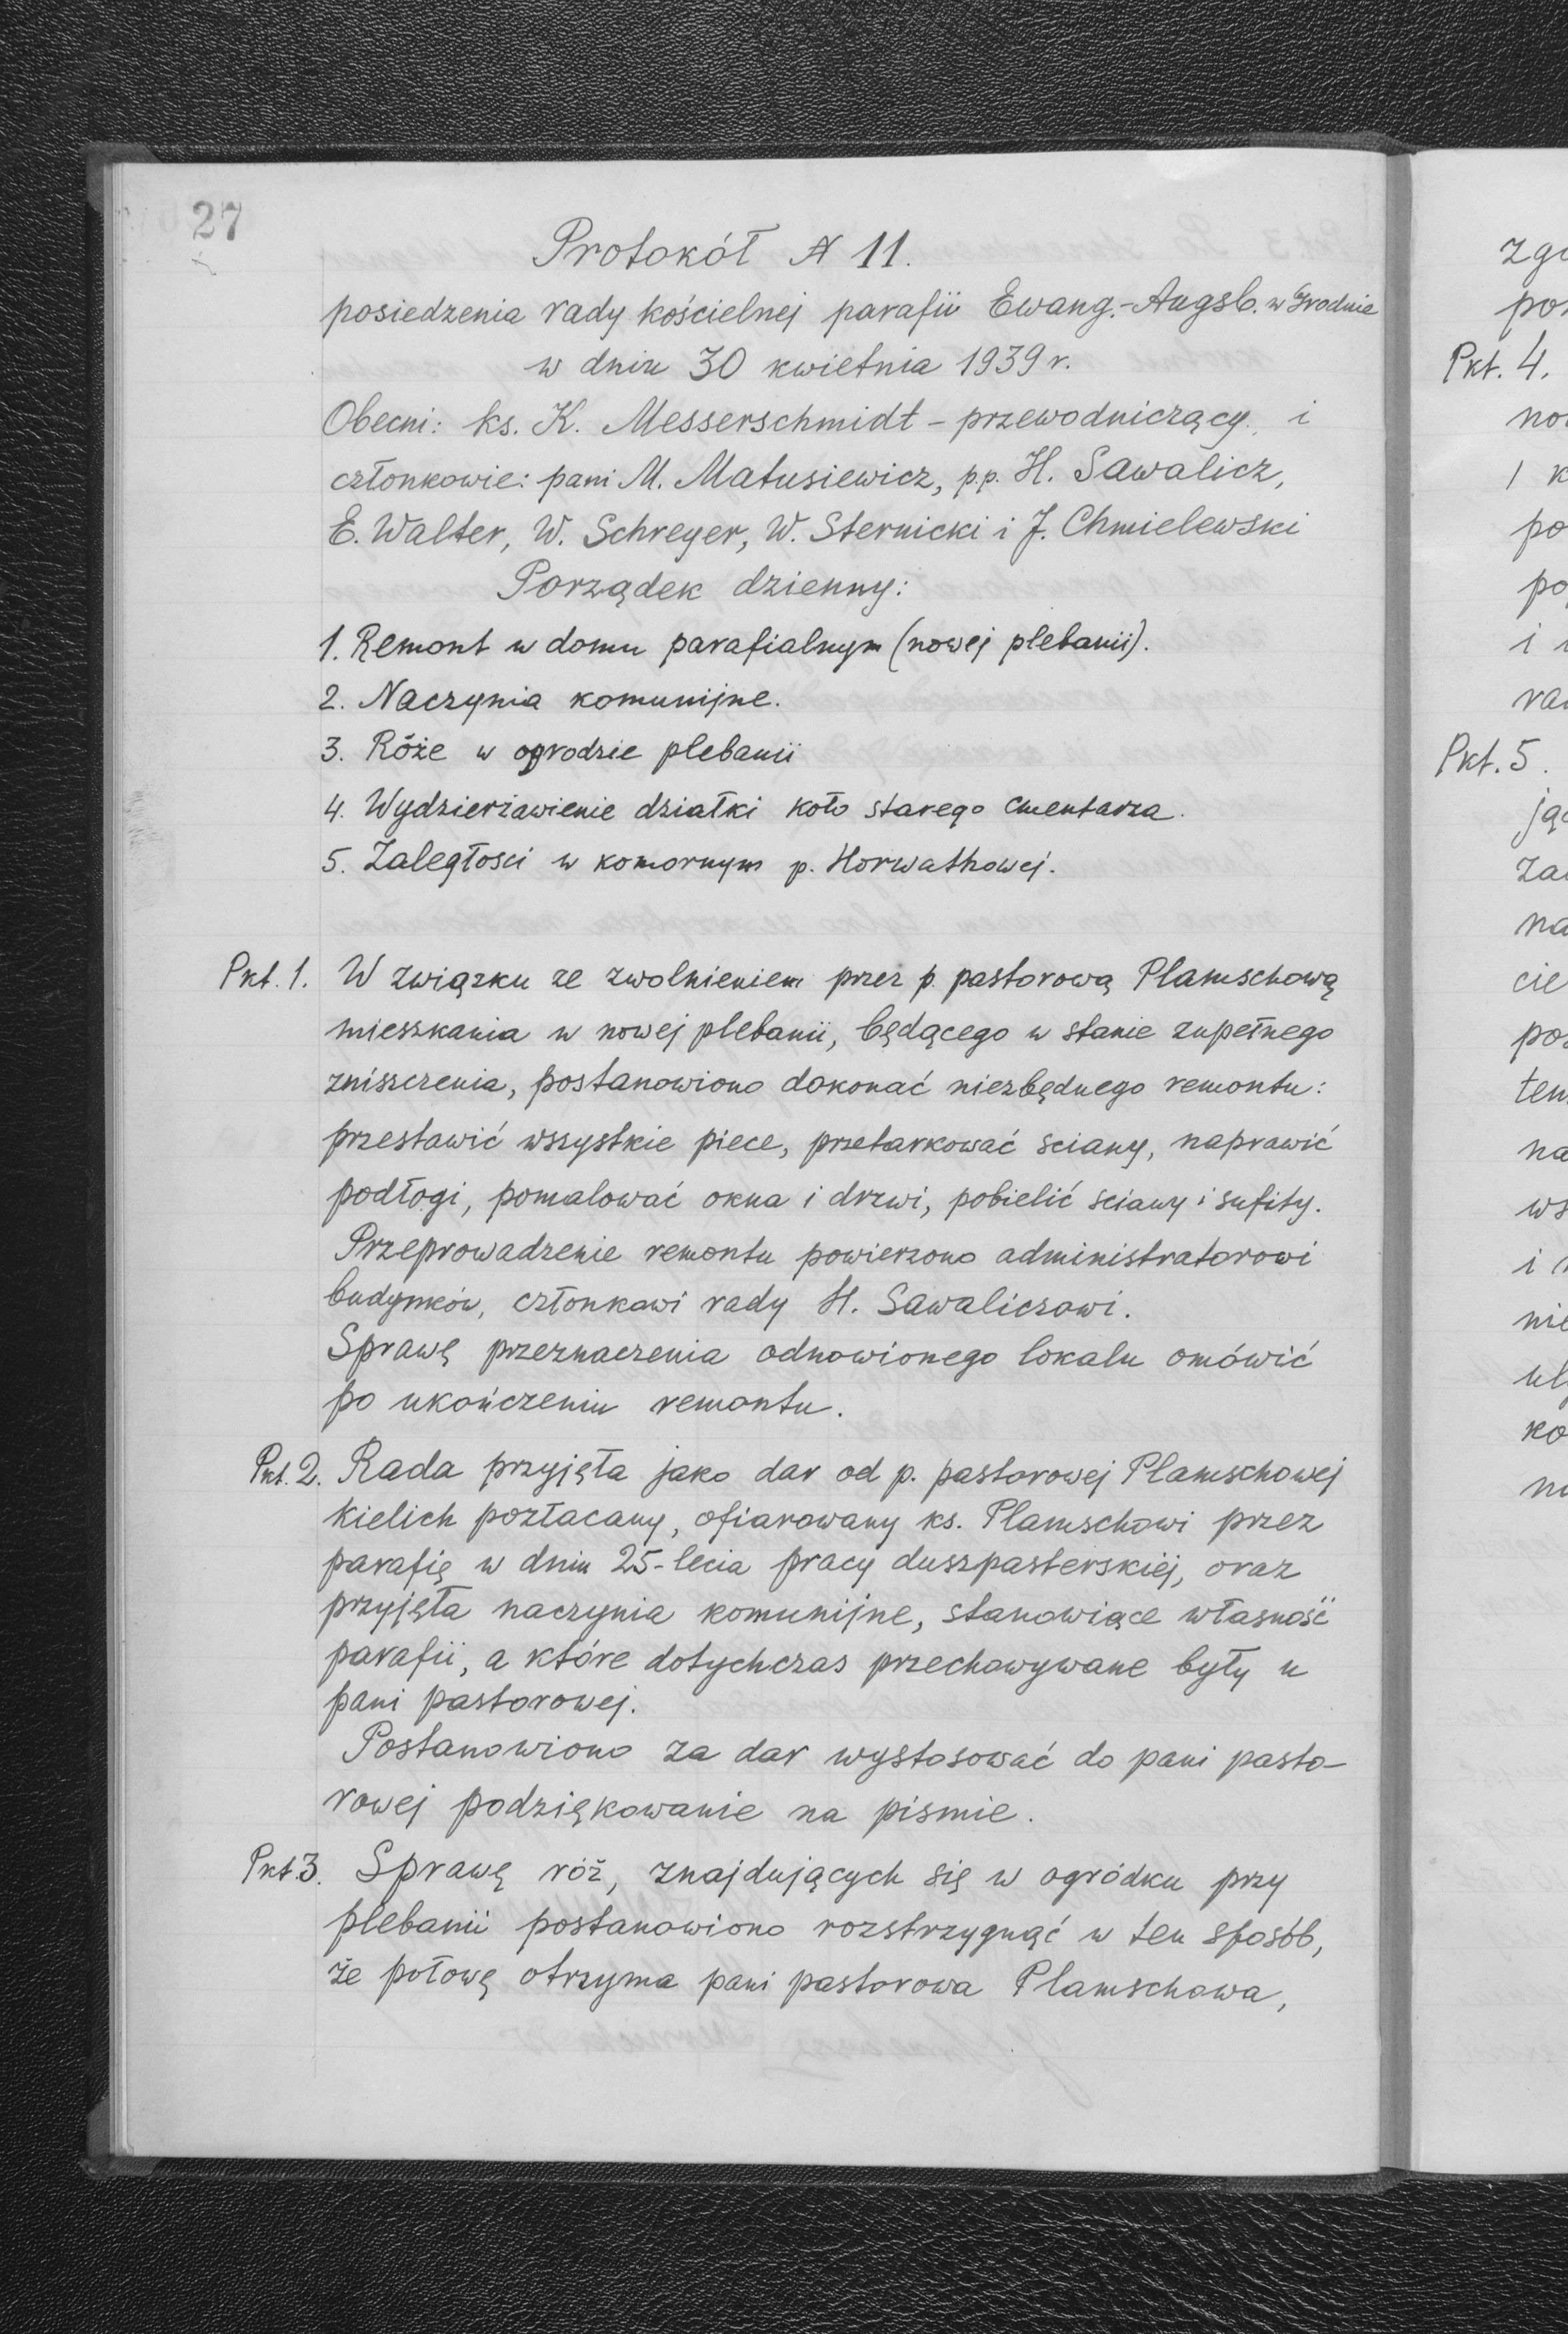 27
Protokół N 11.
posiedzenia rady kościelnej parafii Ewang.-Augsb. w Grodnie
w dniu 30 kwietnia 1939 r.
Obecni: ks. K. Messerschmidt – przewodniczący, i
członkowie: pani M. Matusiewicz, p.p. H. Sawalicz,
E. Walter, W. Schreyer, W. Sternicki i J. Chmielewski
Porządek dzienny:
1. Remont w domu parafialnym (nowej plebanii).
2. Naczynia komunijne.
3. Róże w ogrodzie plebanii
4. Wydzierżawienie działki koło starego cmentarza.
5. Zaległosci w komornym p. Horwathowej.
Pkt. 1. W związku ze zwolnieniem przez p. pastorową Plamschową
mieszkania w nowej plebanii, będącego w stanie zupełnego
zniszczenia, postanowiono dokonać niezbędnego remontu:
przestawić wszystkie piece, przetarkować sciany, naprawić
podłogi, pomalować okna i drzwi, pobielić sciany i sufity.
Przeprowadzenie remontu powierzono administratorowi
budynków, członkowi rady H. Sawaliczowi.
Sprawę przeznaczenia odnowionego lokalu omówić
po ukończeniu remontu.
Pkt. 2. Rada przyjęła jako dar od p. pastorowej Plamschowej
kielich pozłacany, ofiarowany ks. Plamschowi przez
parafię w dniu 25-lecia pracy duszpasterskiej, oraz
przyjęła naczynia komunijne, stanowiące własność
parafii, a które dotychczas przechowywane były u
pani pastorowej.
Postanowiono za dar wystosować do pani pasto-
rowej podziękowanie na pismie.
Pkt. 3. Sprawę róż, znajdujących się w ogródku przy
plebanii postanowiono rozstrzygnąć w ten sposób,
że połowę otrzyma pani pastorowa Plamschowa,
Pkt. 4.
Pkt. 5.